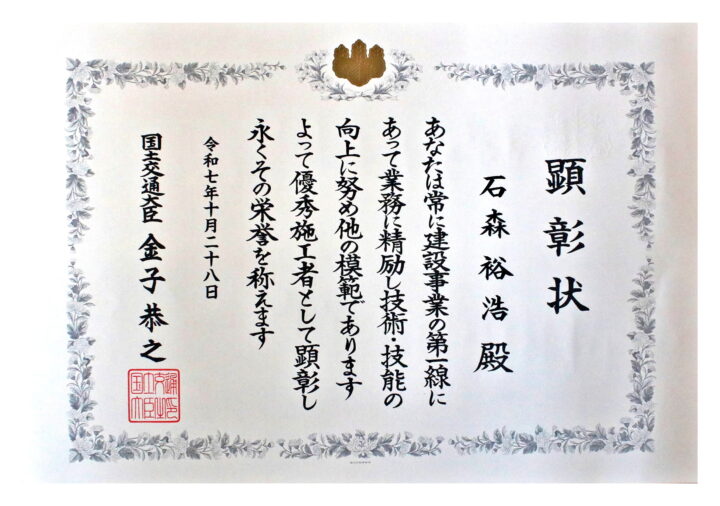 顕彰状
石森裕浩殿
あなたは常に建設事業の第一線に
あって業務に精励し技術・技能の
向上に努め他の模範であります
よって優秀施工者として顕彰し
永くその栄誉を称えます
令和七年十月二十八日
国土交通大臣 金子恭之